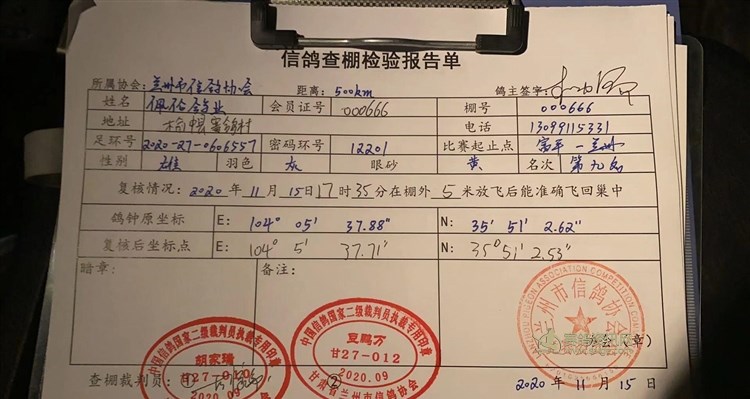 信鸽查棚检验报告单
所属协会:兰州市信鸽协会 距离:500km 鸽主签字:
姓名 佩佑鸽业 会员证号 000666 棚号 000666
地址 电话 13099115331
足环号 2020-27-0606557 密码环号 12201 比赛起止点 富平—兰州
性别 雄 羽色 灰 眼砂 黄 名次 第九名
复核情况:2020年11月15日17时35分在棚外5米放飞后能准确飞回巢中
鸽钟原坐标 E: 104° 05′ 37.88″ N: 35° 51′ 2.62″
复核后坐标点 E: 104° 5′ 37.71″ N: 35°51′ 2.53″
暗章: 备注:
中国信鸽国家二级裁判员执裁专用印章
胡家瑞
甘27-010
2020.09
中国信鸽国家二级裁判员执裁专用印章
豆鹏万
甘27-012
2020.09
甘肃省兰州市信鸽协会
LANZHOU PIGEON ASSOCIATION COMPETITION
兰州市信鸽协会
(章)
查棚裁判员:① ② 2020年11月15日